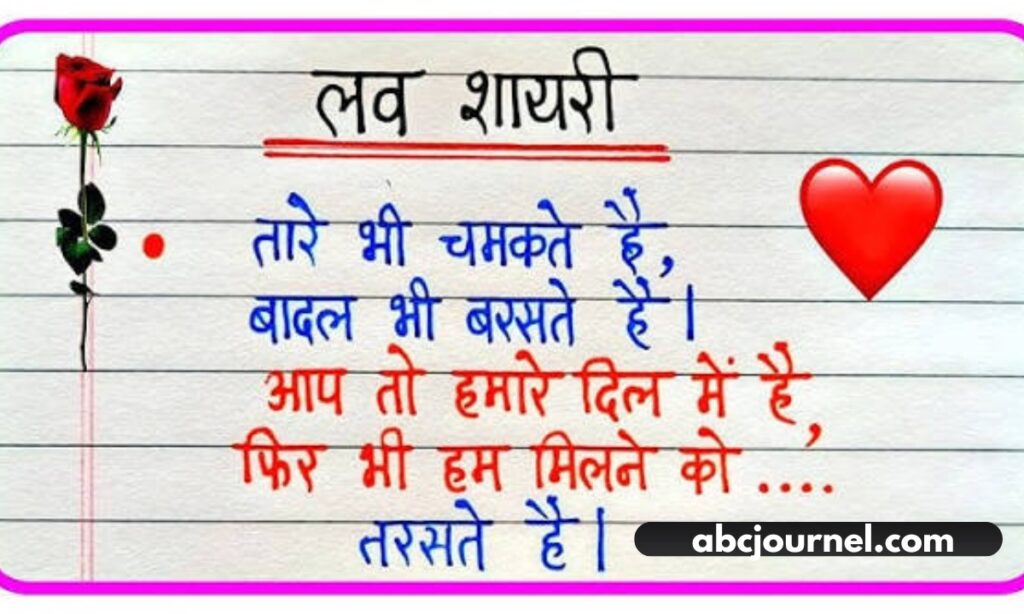 लव शायरी
तारे भी चमकते है,
बादल भी बरसते है।
आप तो हमारे दिल में है,
फिर भी हम मिलने को ....
तरसते है।
abcjournel.com